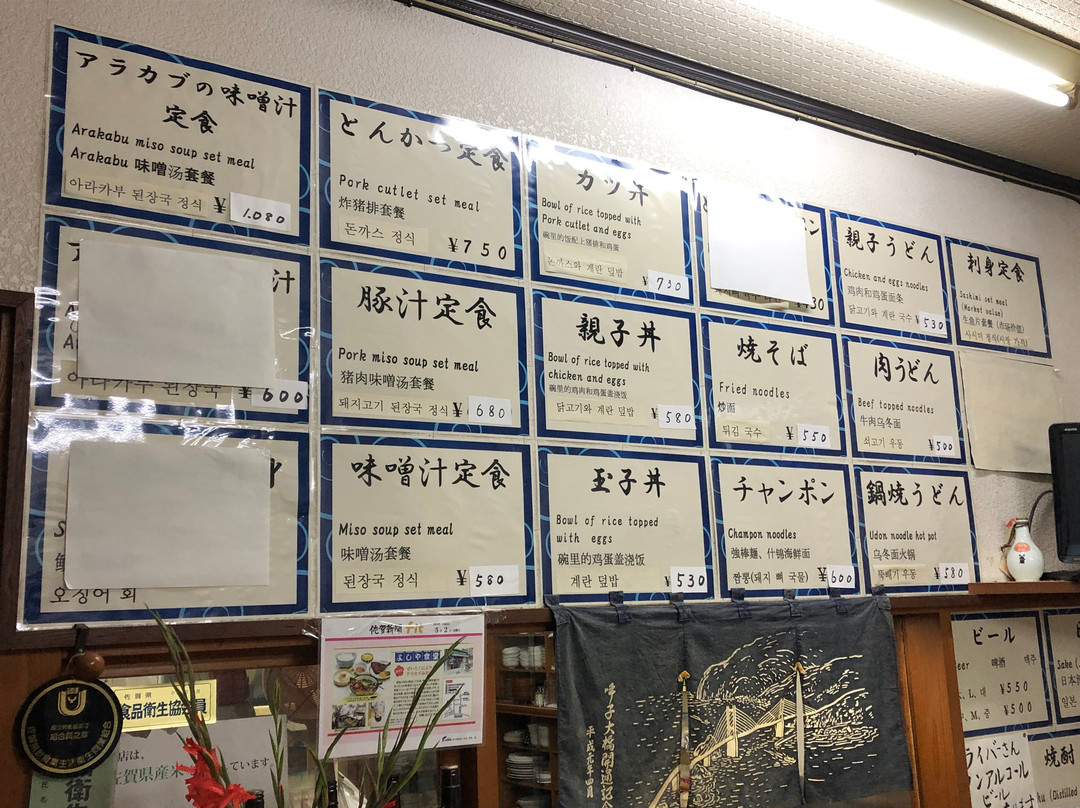 アラカブの味噌汁
定食
Arakabu miso soup set meal
Arakabu 味噌汤套餐
아라카부 된장국 정식 ¥1.080
とんかつ定食
Pork cutlet set meal
炸猪排套餐
돈까스 정식 ¥750
カツ丼
Bowl of rice topped with
Pork cutlet and eggs
碗里的饭配上猪排和鸡蛋
돈까스와 계란 덮밥 ¥730
ン
30
親子うどん
Chicken and eggs noodles
鸡肉和鸡蛋面条
닭고기와 계란 국수 ¥530
刺身定食
Sashimi set meal
(Market value)
生鱼片套餐 (市场价值)
사시미 정식(시장 가격)
汁
아라카부 된장국 ¥600
豚汁定食
Pork miso soup set meal
猪肉味噌汤套餐
돼지고기 된장국 정식 ¥680
親子丼
Bowl of rice topped with
chicken and eggs
碗里的鸡肉和鸡蛋盖浇饭
닭고기와 계란 덮밥 ¥580
焼そば
Fried noodles
炒面
튀김 국수 ¥550
肉うどん
Beef topped noodles
牛肉乌冬面
쇠고기 우동 ¥500
오징어 회
味噌汁定食
Miso soup set meal
味噌汤套餐
된장국 정식 ¥580
玉子丼
Bowl of rice topped
with eggs
碗里的鸡蛋盖浇饭
계란 덮밥 ¥530
チャンポン
Champon noodles
強棒麺、什锦海鲜面
짬뽕(돼지 뼈 국물) ¥600
鍋焼うどん
Udon noodle hot pot
乌冬面火锅
뚝배기 우동 ¥580
佐賀新聞
5月2日
よしや食堂
佐賀県
食品衛生協
員
組合員之章
店は、
佐賀県産米
ています。
衛
呼子大橋開通記念
平成元年四月
ビール
eer 啤酒 맥주
L, 대 ¥550
M, 중 ¥500
Sake
日本
일본
ライバーさん
ンアルコール
ビール
焼酎
(Distilled